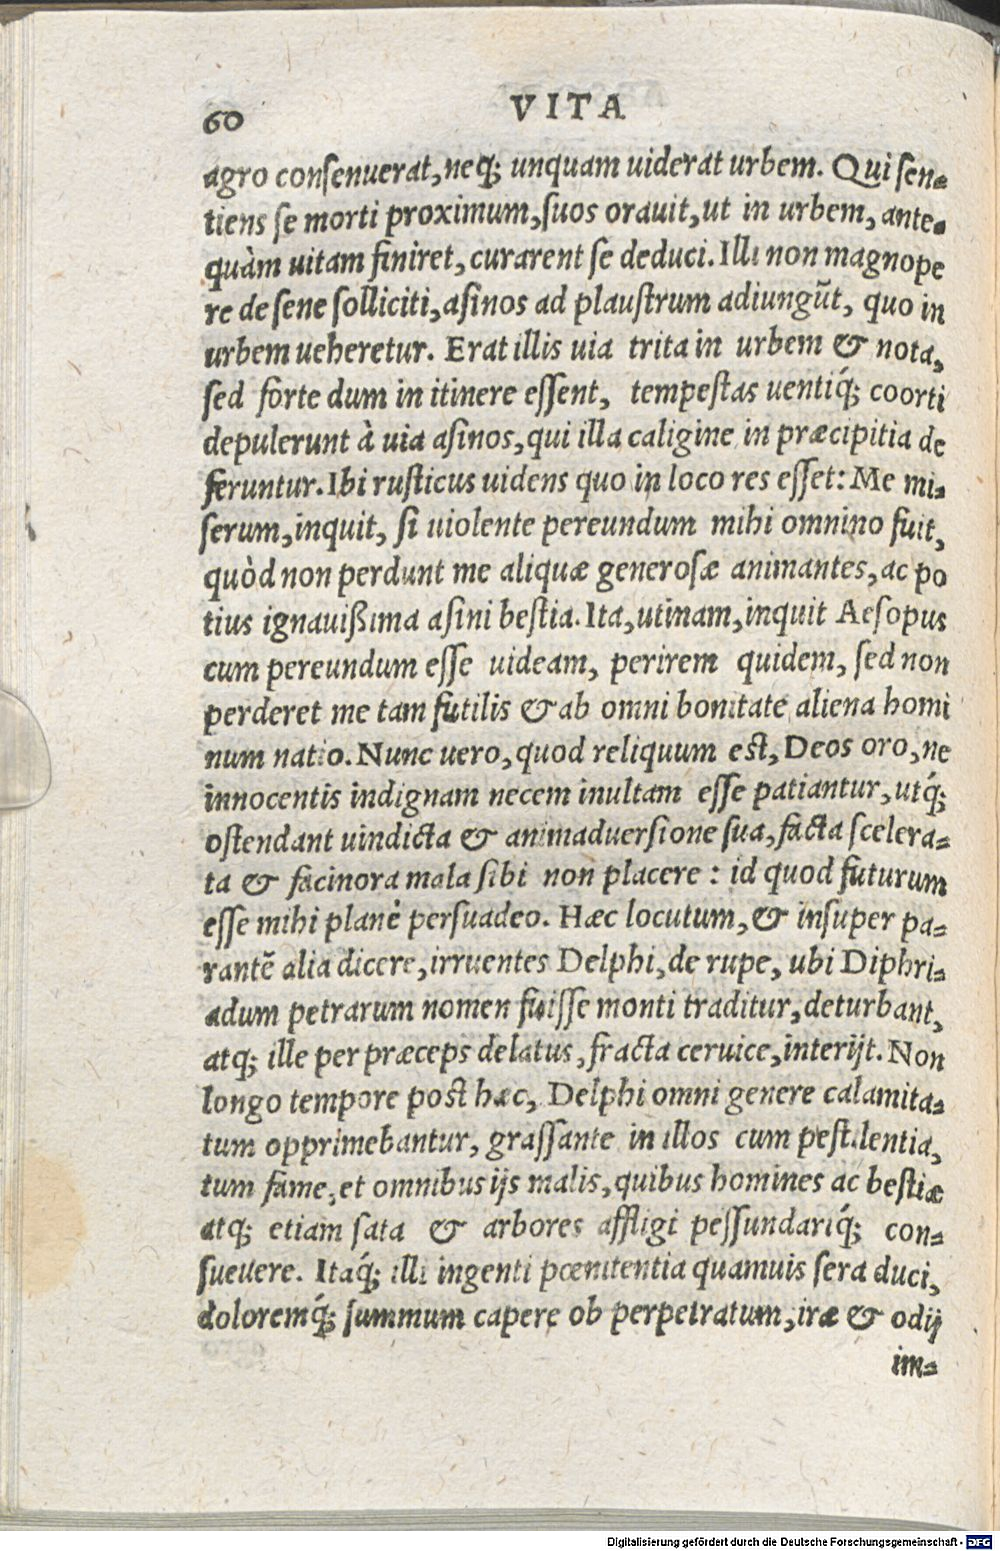 60
VITA
agro consenuerat, neq; unquam uiderat urbem. Qui sen-
tiens se morti proximum, suos orauit, ut in urbem, ante-
quàm uitam finiret, curarent se deduci. Illi non magnope
re de sene solliciti, asinos ad plaustrum adiungũt, quo in
urbem ueheretur. Erat illis uia trita in urbem & nota,
sed forte dum in itinere essent, tempestas uentiq́; coorti
depulerunt à uia asinos, qui illa caligine in præcipitia de
feruntur. Ibi rusticus uidens quo in loco res esset: Me mi-
serum, inquit, si uiolente pereundum mihi omnino fuit,
quòd non perdunt me aliquæ generosæ animantes, ac po
tius ignauißima asini bestia. Ita, utinam, inquit Aesopus
cum pereundum esse uideam, perirem quidem, sed non
perderet me tam futilis & ab omni bonitate aliena homi
num natio. Nunc uero, quod reliquum est, Deos oro, ne
innocentis indignam necem inultam esse patiantur, utq́;
ostendant uindicta & animaduersione sua, facta scelera-
ta & facinora mala sibi non placere : id quod futurum
esse mihi planè persuadeo. Hæc locutum, & insuper pa-
rantẽ alia dicere, irruentes Delphi, de rupe, ubi Diphri-
adum petrarum nomen fuisse monti traditur, deturbant,
atq; ille per præceps delatus, fracta ceruice, interijt. Non
longo tempore post hæc, Delphi omni genere calamita-
tum opprimebantur, grassante in illos cum pestilentia,
tum fame, et omnibus ijs malis, quibus homines ac bestiæ
atq; etiam sata & arbores affligi pessundariq́; con-
sueuere. Itaq́; illi ingenti pœnitentia quamuis sera duci,
doloremq́; summum capere ob perpetratum, iræ & odij
im-
Digitalisierung gefördert durch die Deutsche Forschungsgemeinschaft - DFG